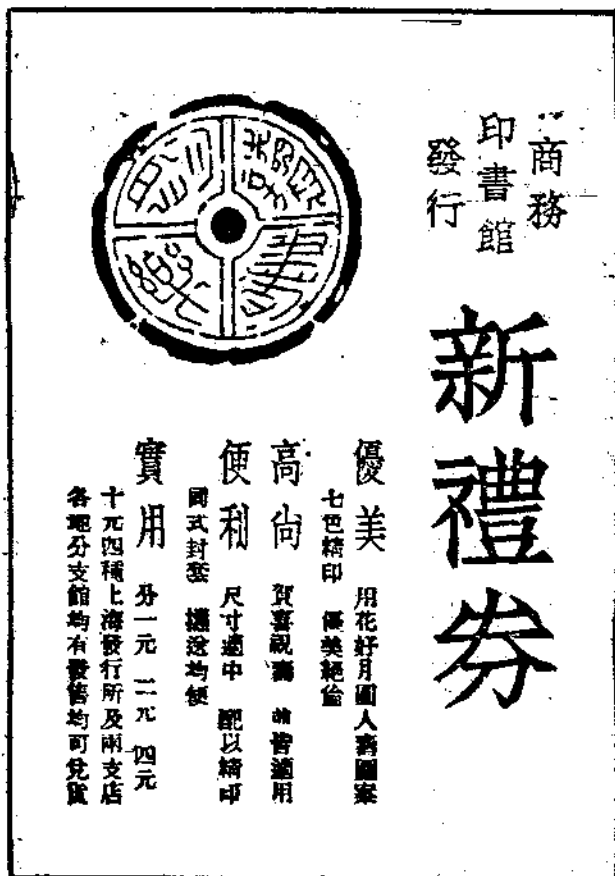 商務
印書館
發行
新禮券
優美 用花好月圓人壽圖案
七色精印 優美絕倫
高尚 賀喜祝壽 皆適用
便利 尺寸適中 配以精印
國式封套 攜送均便
實用 分一元 二元 四元
十元四種上海發行所及兩支店
各地分支館均有發售均可兌貨